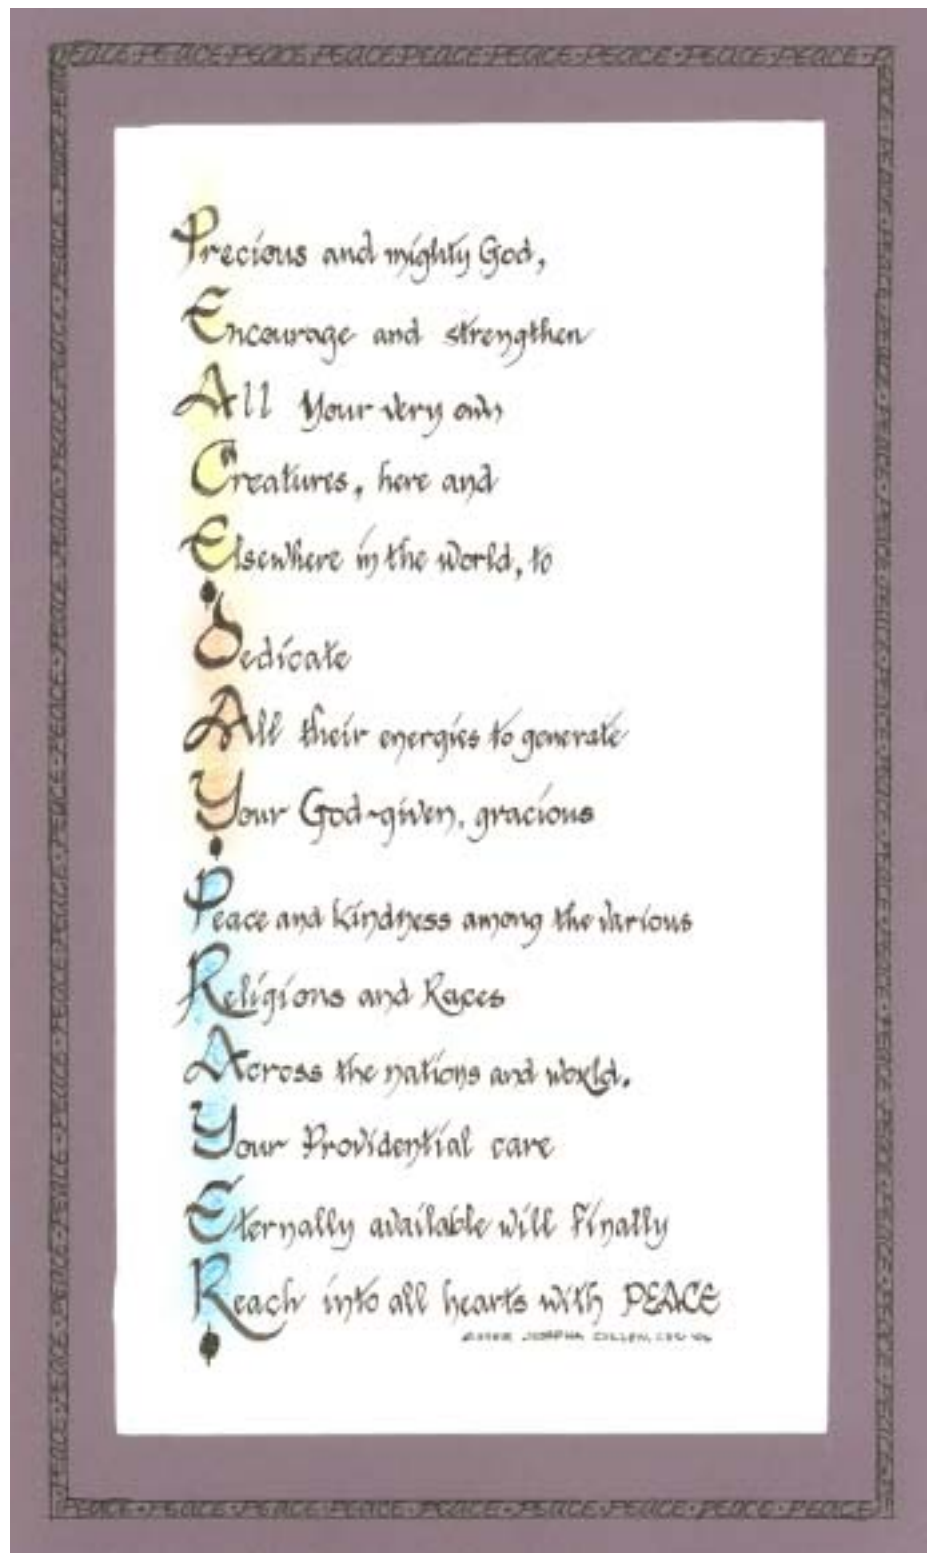 PEACE·PEACE·PEACE·PEACE·PEACE·PEACE·PEACE·PEACE·PEACE·P
Precious and mighty God,
Encourage and strengthen
All Your very own
Creatures, here and
Elsewhere in the world, to
Dedicate
All their energies to generate
Your God-given, gracious
Peace and kindness among the various
Religions and Races
Across the nations and world.
Your Providential care
Eternally available will Finally
Reach into all hearts with PEACE
PEACE·PEACE·PEACE·PEACE·PEACE·PEACE·PEACE·PEACE·PEACE